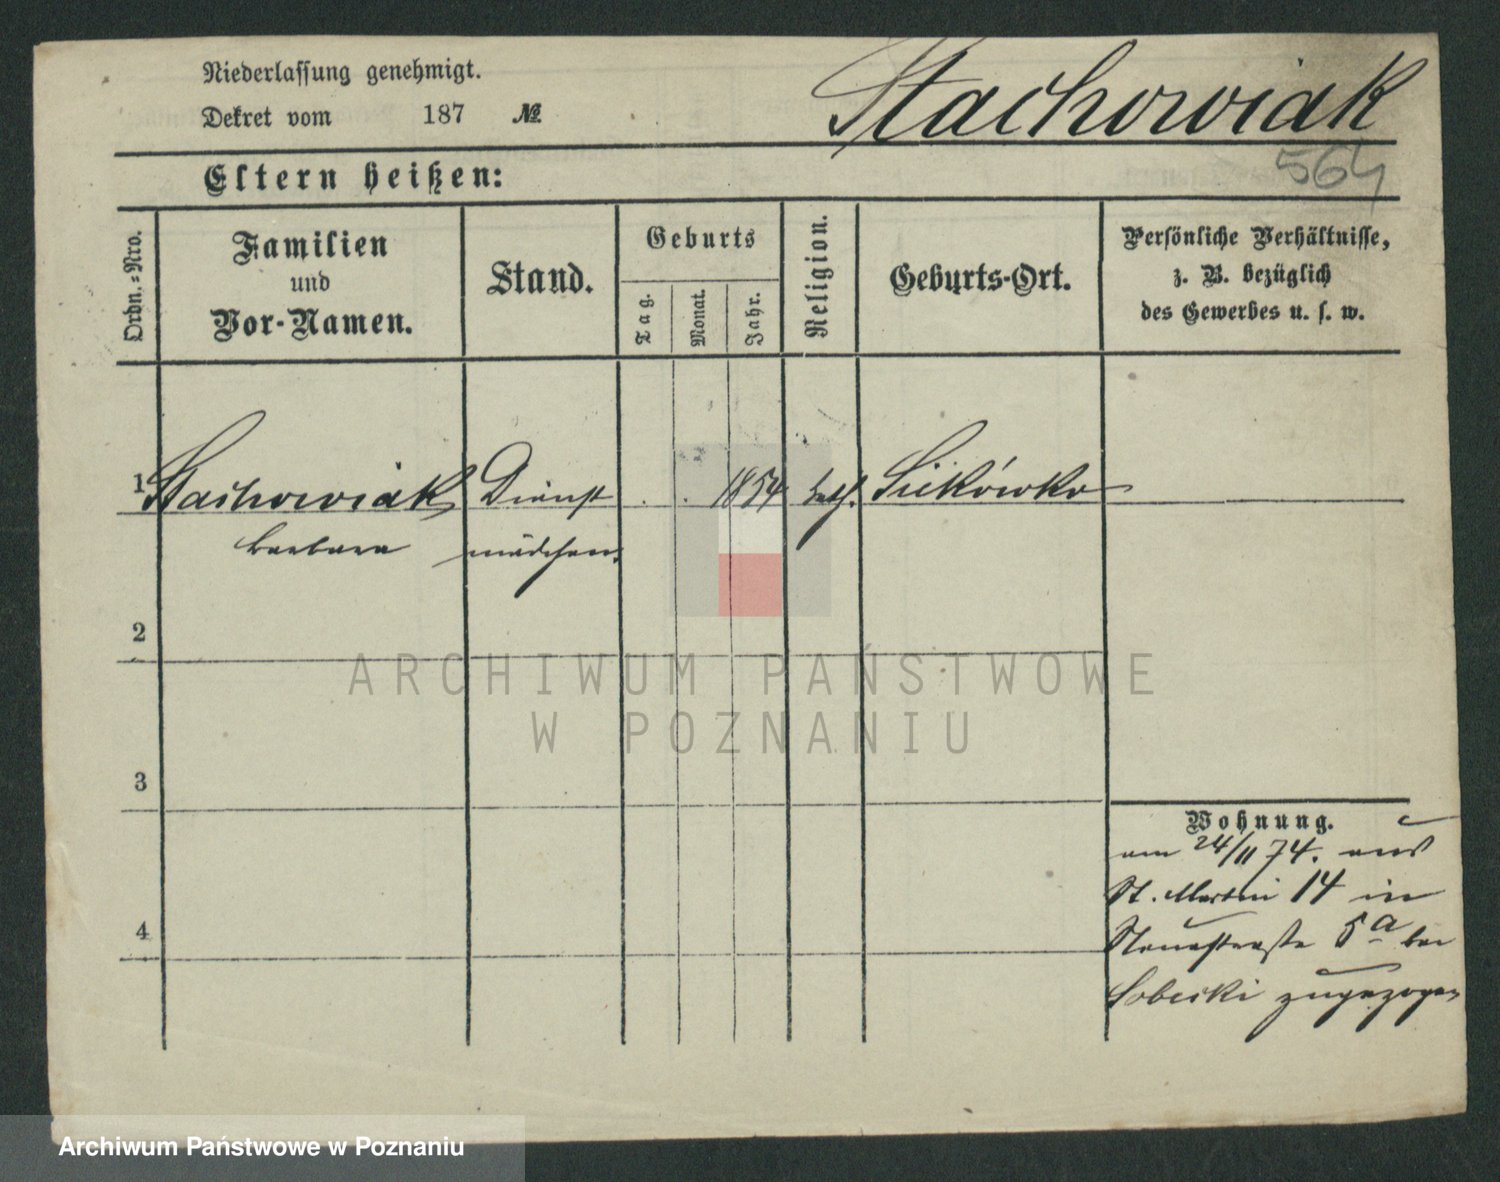 Niederlassung genehmigt.
Dekret vom 187 №
Stachowiak
564
Eltern heißen:
Ordn.=Nro.
Familien
und
Vor-Namen.
Stand.
Geburts
Tag.
Monat.
Jahr.
Religion.
Geburts-Ort.
Persönliche Verhältnisse,
z. B. bezüglich
des Gewerbes u. s. w.
1 Stachowiak Dienst . . 1854 kath. Siekówko
Barbara mädchen.
2
3
4
Wohnung.
am 24/11 74. aus
St. Martin 14 in
Neuestraße 5a bei
Sobecki zugezogen
ARCHIWUM PAŃSTWOWE
W POZNANIU
Archiwum Państwowe w Poznaniu